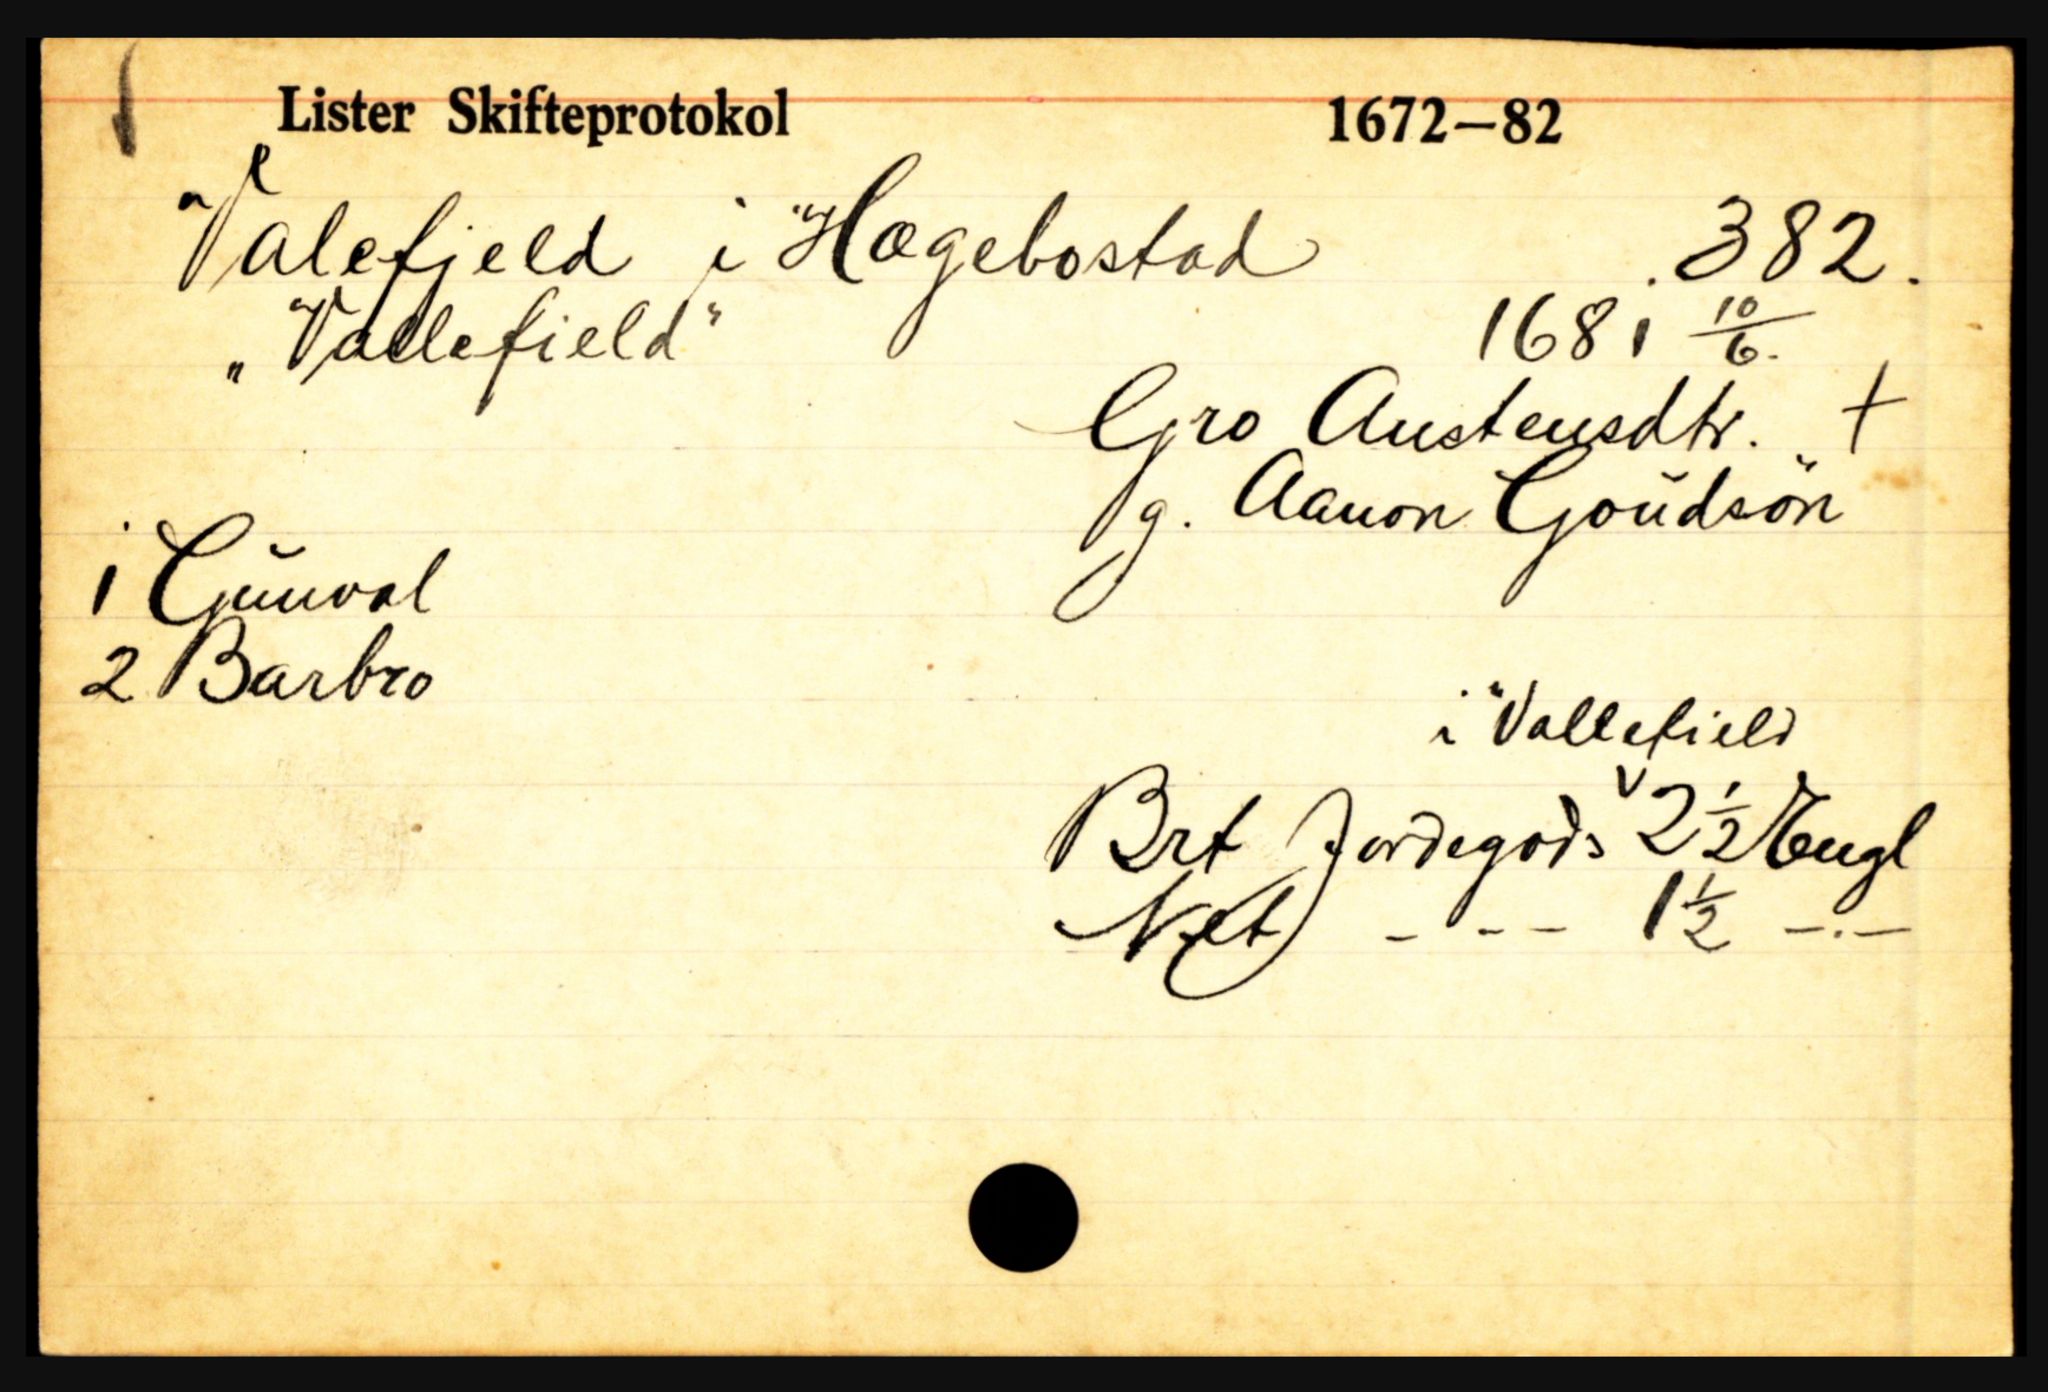 Lister Skifteprotokol 1672–82
Valefjeld i Hægebostad 382.
"Vallefield" 1681 10/6.
Gro Austensdtr. +
g. Aanon Goúdsön
1 Gúnval
2 Barbro
i Vallefield
Brt Jordegods 2 1/2 Engl
Net - - - 1 1/2 -.-